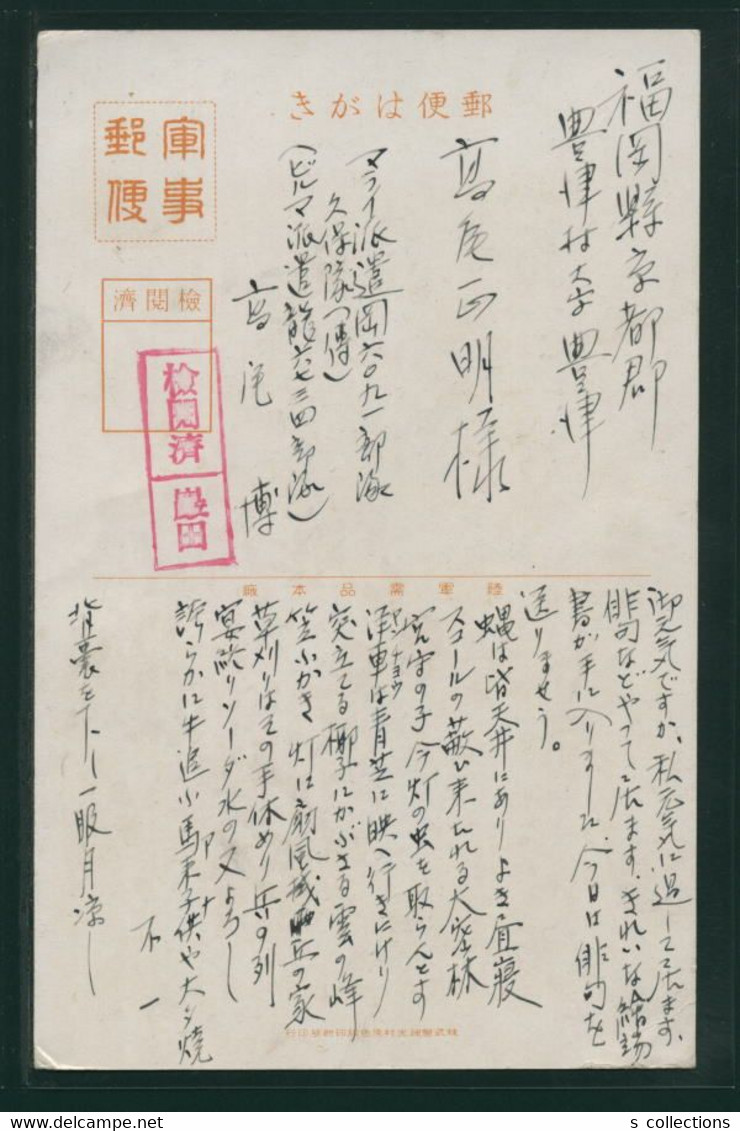 郵便はがき
軍事
郵便
檢閲濟
檢閲濟
福岡縣京都郡
豊津村大字豊津
高尾正明様
マライ派遣岡六〇九一部隊
久保隊(傳)
(ビルマ派遣龍六七三四部隊)
高尾 博
陸軍需品本廠
御元気ですか、私元気に過して居ます。
俳句などやつて居ます。きれいな繪端
書が手に入りました。今日は俳句を
送りませう。
蝿は皆天井にありよき昼寝
スコールの蔽ひ来たれる大密林
宮守の子今灯の虫を取らんとす
汽車は青芝に映へ行きにけり
突立てる椰子にかぶさる雲の峰
笠小かき灯に扇風機兵の家
草刈りはその手休めり兵の列
宴終りソーダ水の又よろし
誇らかに牛追小馬来子供や大夕焼
不一
背嚢を下し一服月凉し
s collections